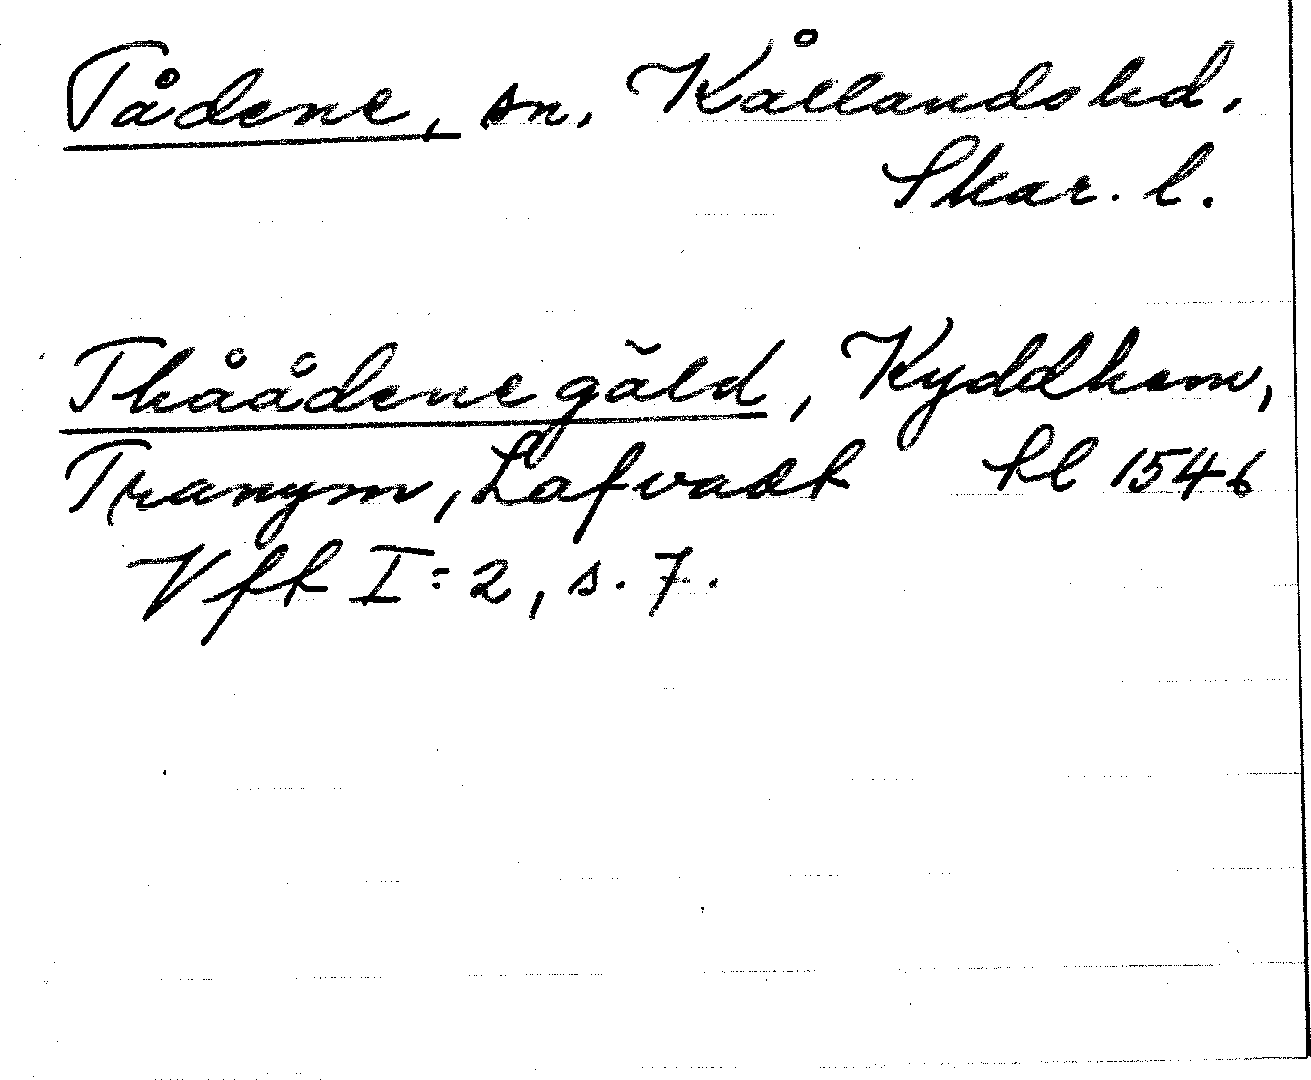 Tådene, sn, Kållandshd.
Skar. l.
Thåådene gäld, Kyddhem,
Tranym, Lafvadh hl 1546
Vfh I:2, s. 7.